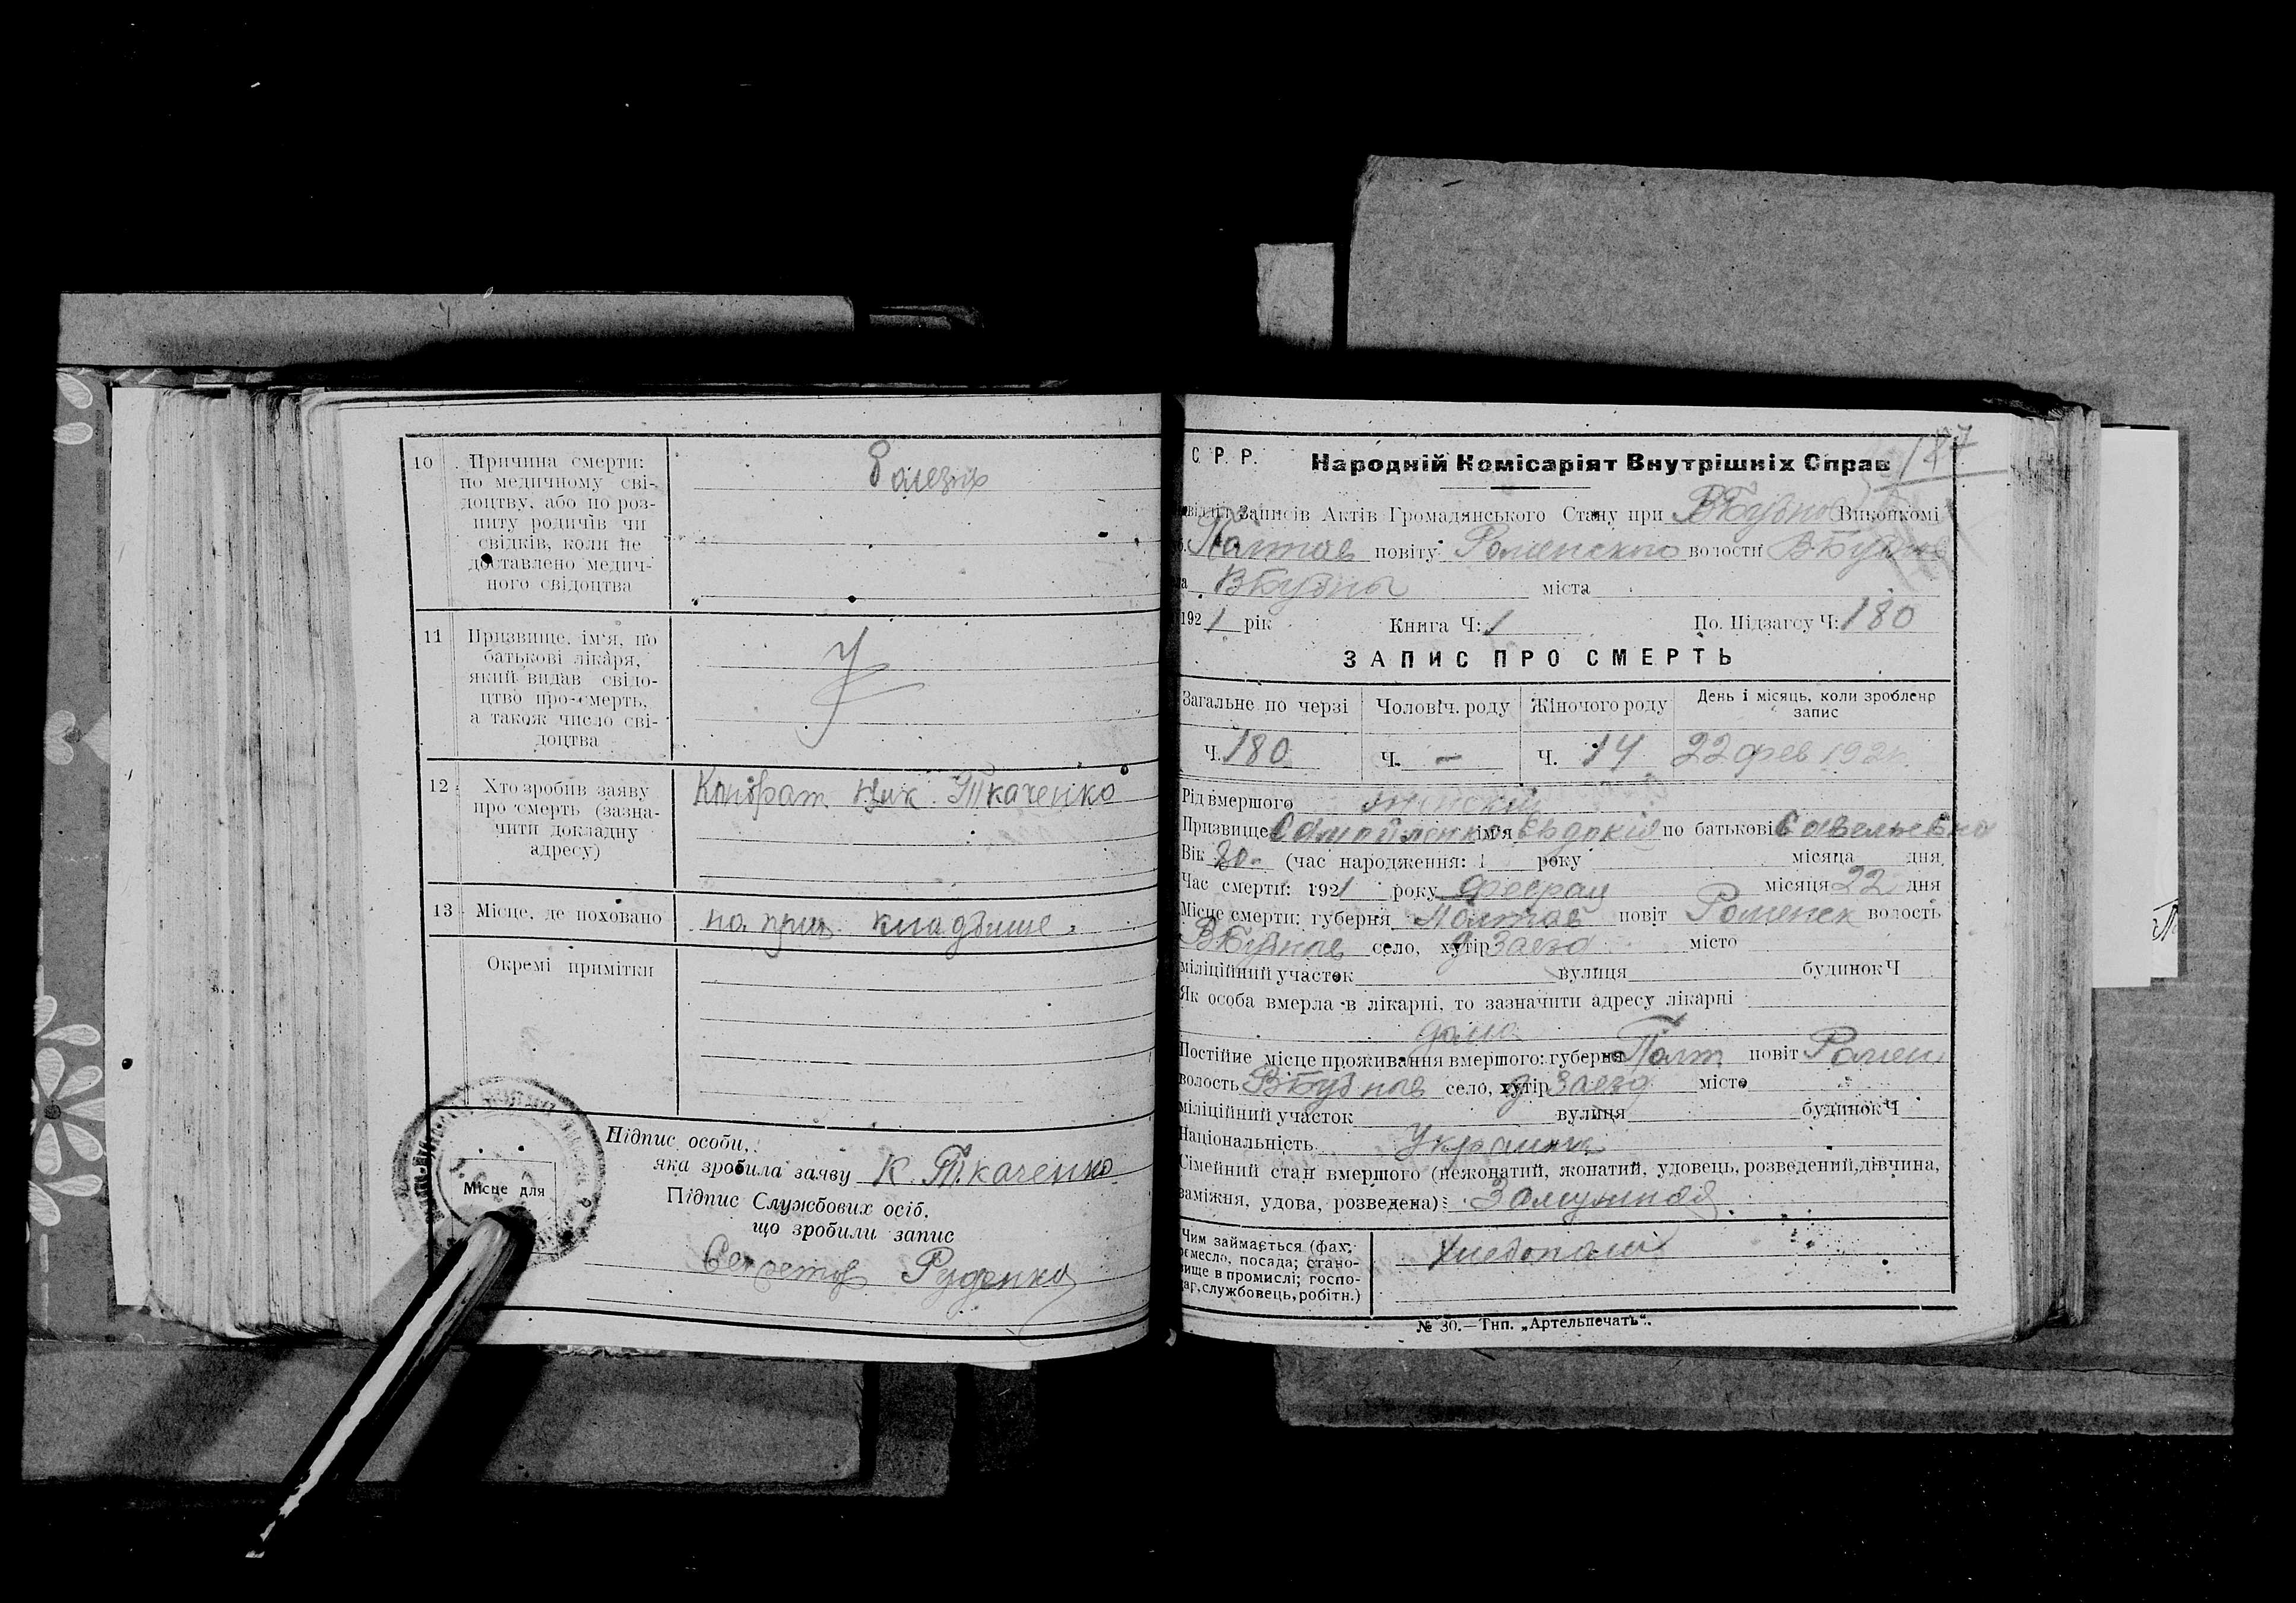 10 Причина смерти:
по медичному сві-
доцтву, або по роз-
питу родичів чи
свідків, коли не
доставлено медич-
ного свідоцтва
болезнь
11 Призвище, ім'я, по
батькові лікаря,
який видав свідо-
цтво про смерть,
а також число сві-
доцтва
12 Хто зробив заяву
про смерть (зазна-
чити докладну
адресу)
Кондрат Ник. Ткаченко
13 Місце, де поховано
на прих. кладбище.
Окремі примітки
Місце для
Підпис особи,
яка зробила заяву К. Ткаченко
Підпис Службових осіб,
що зробили запис
Секретар Руденко
187
С. Р. Р. Народній Комісаріят Внутрішніх Справ
відділ Записів Актів Громадянського Стану при ВБубнов Виконкомі
Полтав повіту Роменского волости В-Бубнов
ВБубны міста
1921 рік Книга Ч: 1 По. Підзагсу Ч: 180
ЗАПИС ПРО СМЕРТЬ
Загальне по черзі Чоловіч. роду Жіночого роду День і місяць, коли зроблено
запис
Ч. 180 Ч. – Ч. 14 22 фев 1921
Рід вмершого женский
Призвище Самойленко ім'я Евдокія по батькові Савельевна
Вік 80 (час народження: 1 року місяца дня
Час смерти: 1921 року Феврал місяця 22 дня
Місце смерти: губерня Полтав повіт Роменск волость
ВБубнов село, хутір д Заезд місто
міліційний участок вулиця будинок Ч
Як особа вмерла в лікарні, то зазначити адресу лікарні
дома
Постійне місце проживання вмершого: губерня Полт повіт Ромен
волость ВБубнов село, хутір д Заезд місто
міліційний участок вулиця будинок Ч
Національність Украинк
Сімейний стан вмершого (нежонатий, жонатий, удовець, розведений, дівчина,
заміжня, удова, розведена): Замужная
Чим займається (фах,
ремесло, посада; стано-
вище в промислі; госпо-
дар, службовець, робітн.)
Хлебопаш
№ 30.—Тип. „Артельпечать“.